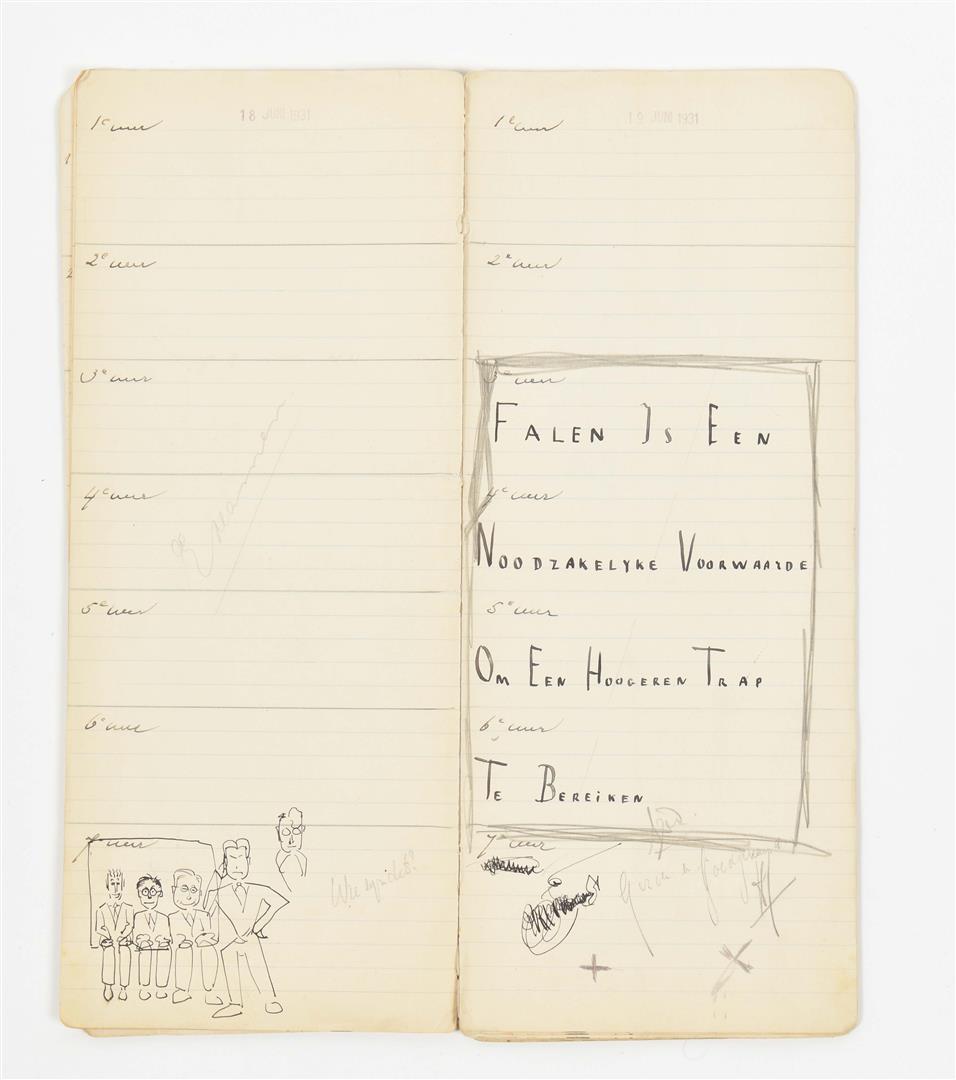 18 JUNI 1931
1e uur
2e uur
3e uur
4e uur
Examen
5e uur
6e uur
7e uur
19 JUNI 1931
1e uur
2e uur
3e uur
FALEN IS EEN
4e uur
NOODZAKELYKE VOORWAARDE
5e uur
OM EEN HOOGEREN TRAP
6e uur
TE BEREIKEN
7e uur